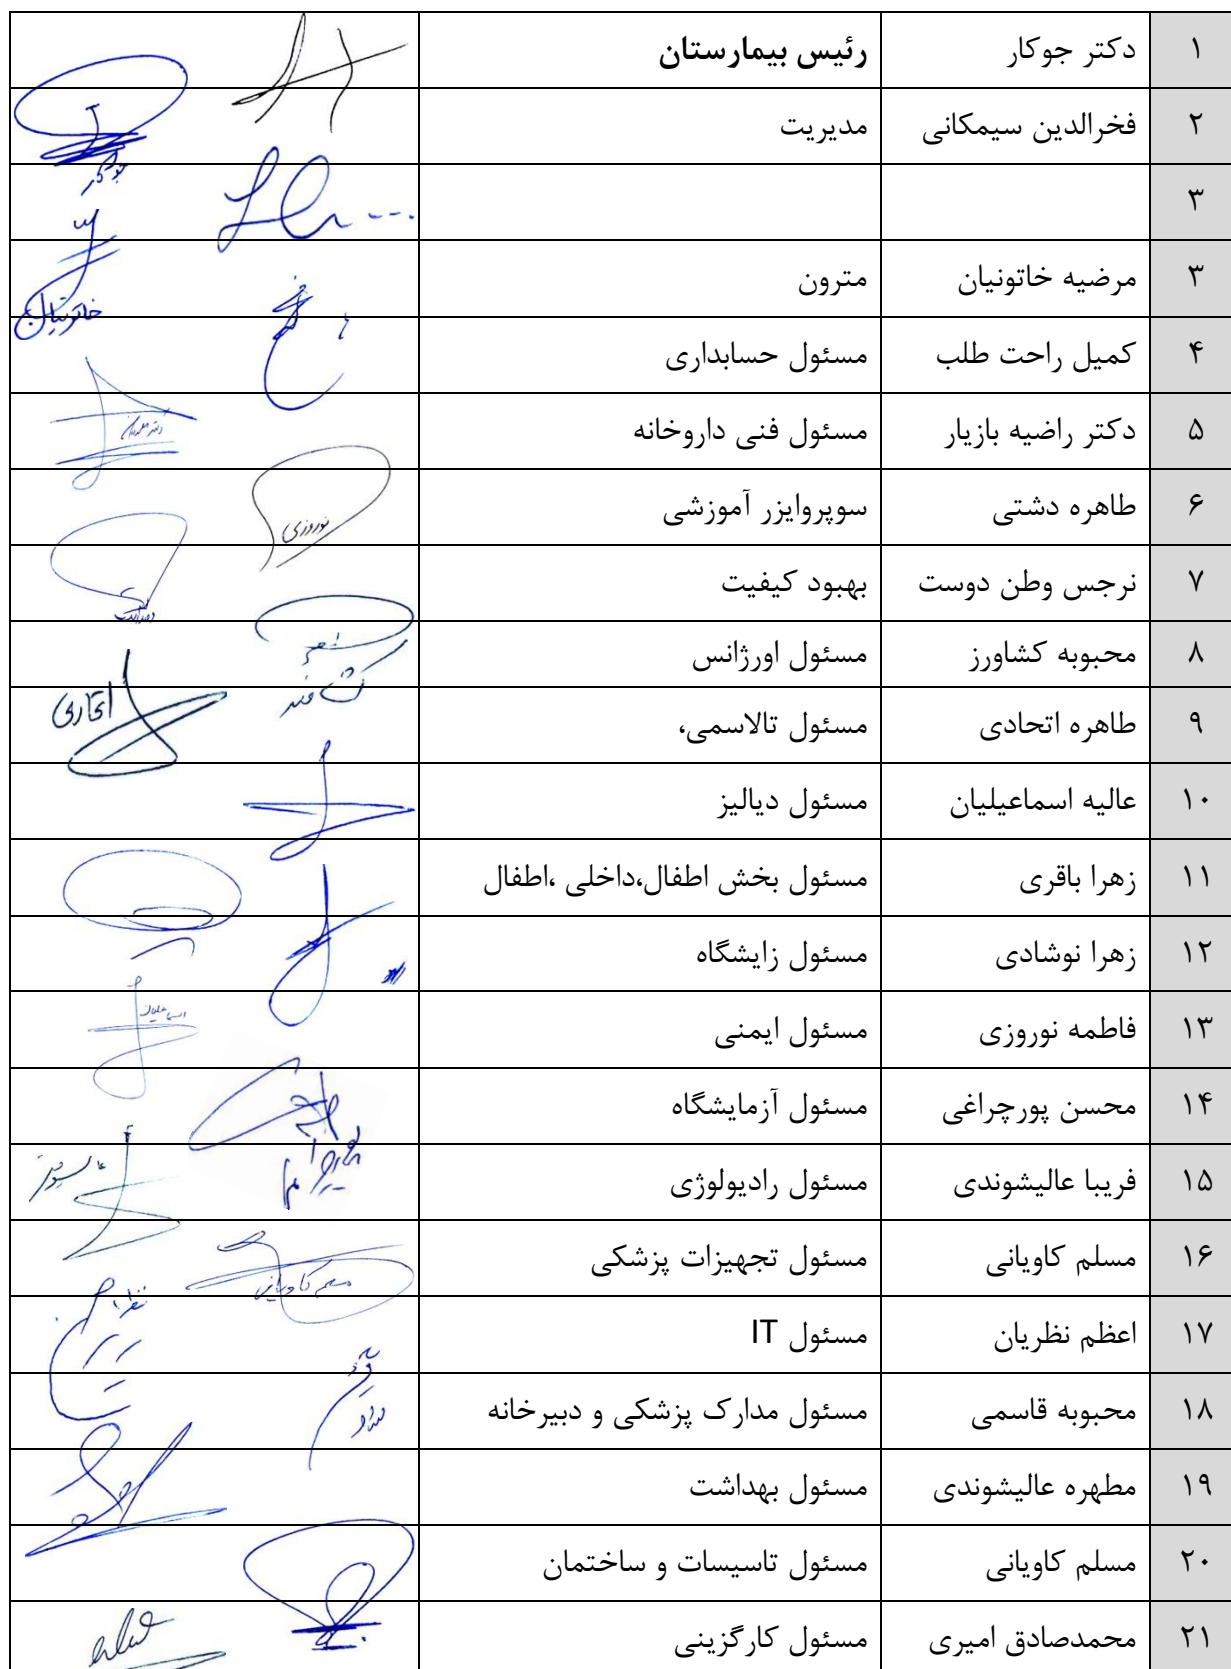 ۱ دکتر جوکار رئیس بیمارستان
۲ فخرالدین سیمکانی مدیریت
۳
۳ مرضیه خاتونیان مترون
۴ کمیل راحت طلب مسئول حسابداری
۵ دکتر راضیه بازیار مسئول فنی داروخانه
۶ طاهره دشتی سوپروایزر آموزشی
۷ نرجس وطن دوست بهبود کیفیت
۸ محبوبه کشاورز مسئول اورژانس
۹ طاهره اتحادی مسئول تالاسمی،
۱۰ عالیه اسماعیلیان مسئول دیالیز
۱۱ زهرا باقری مسئول بخش اطفال،داخلی ،اطفال
۱۲ زهرا نوشادی مسئول زایشگاه
۱۳ فاطمه نوروزی مسئول ایمنی
۱۴ محسن پورچراغی مسئول آزمایشگاه
۱۵ فریبا عالیشوندی مسئول رادیولوژی
۱۶ مسلم کاویانی مسئول تجهیزات پزشکی
۱۷ اعظم نظریان مسئول IT
۱۸ محبوبه قاسمی مسئول مدارک پزشکی و دبیرخانه
۱۹ مطهره عالیشوندی مسئول بهداشت
۲۰ مسلم کاویانی مسئول تاسیسات و ساختمان
۲۱ محمدصادق امیری مسئول کارگزینی
جوکار
خاتونیان
نوروزی
اتحادی
مسلم کاویانی